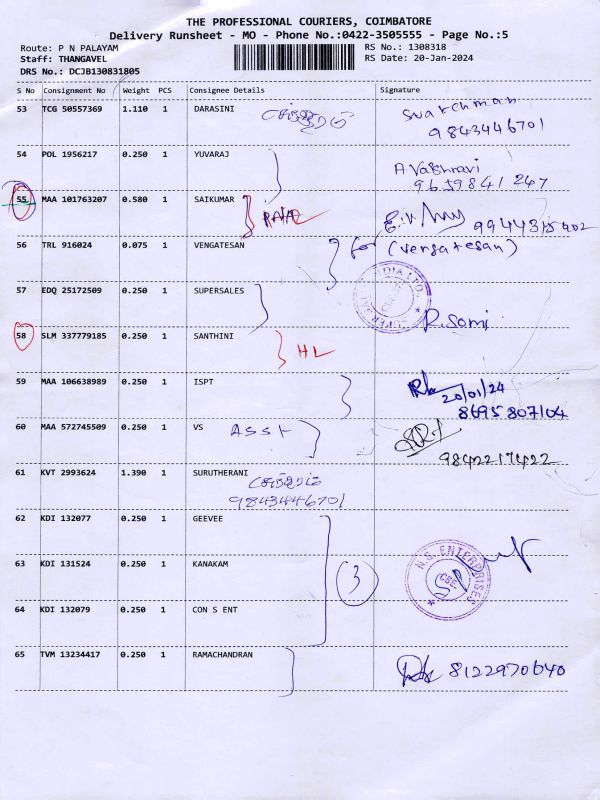 THE PROFESSIONAL COURIERS, COIMBATORE
Delivery Runsheet - MO - Phone No.:0422-3505555 - Page No.:5
Route: P N PALAYAM RS No.: 1308318
Staff: THANGAVEL RS Date: 20-Jan-2024
DRS No.: DCJB130831805
S No Consignment No Weight PCS Consignee Details Signature
53 TCG 50557369 1.110 1 DARASINI
9843446701
54 POL 1956217 0.250 1 YUVARAJ
9659841247
55 MAA 101763207 0.580 1 SAIKUMAR
56 TRL 916024 0.075 1 VENGATESAN for (vengatesan)
57 EDQ 25172509 0.250 1 SUPERSALES
R. Somi
58 SLM 337779185 0.250 1 SANTHINI
HL
59 MAA 106638989 0.250 1 ISPT
20/01/24
8695807104
60 MAA 572745509 0.250 1 VS ASST
9842217422
61 KVT 2993624 1.390 1 SURUTHERANI
9843446701
62 KDI 132077 0.250 1 GEEVEE
63 KDI 131524 0.250 1 KANAKAM 3 N.S. ENTERPRISES CBE
64 KDI 132079 0.250 1 CON S ENT
65 TVM 13234417 0.250 1 RAMACHANDRAN
8122970640